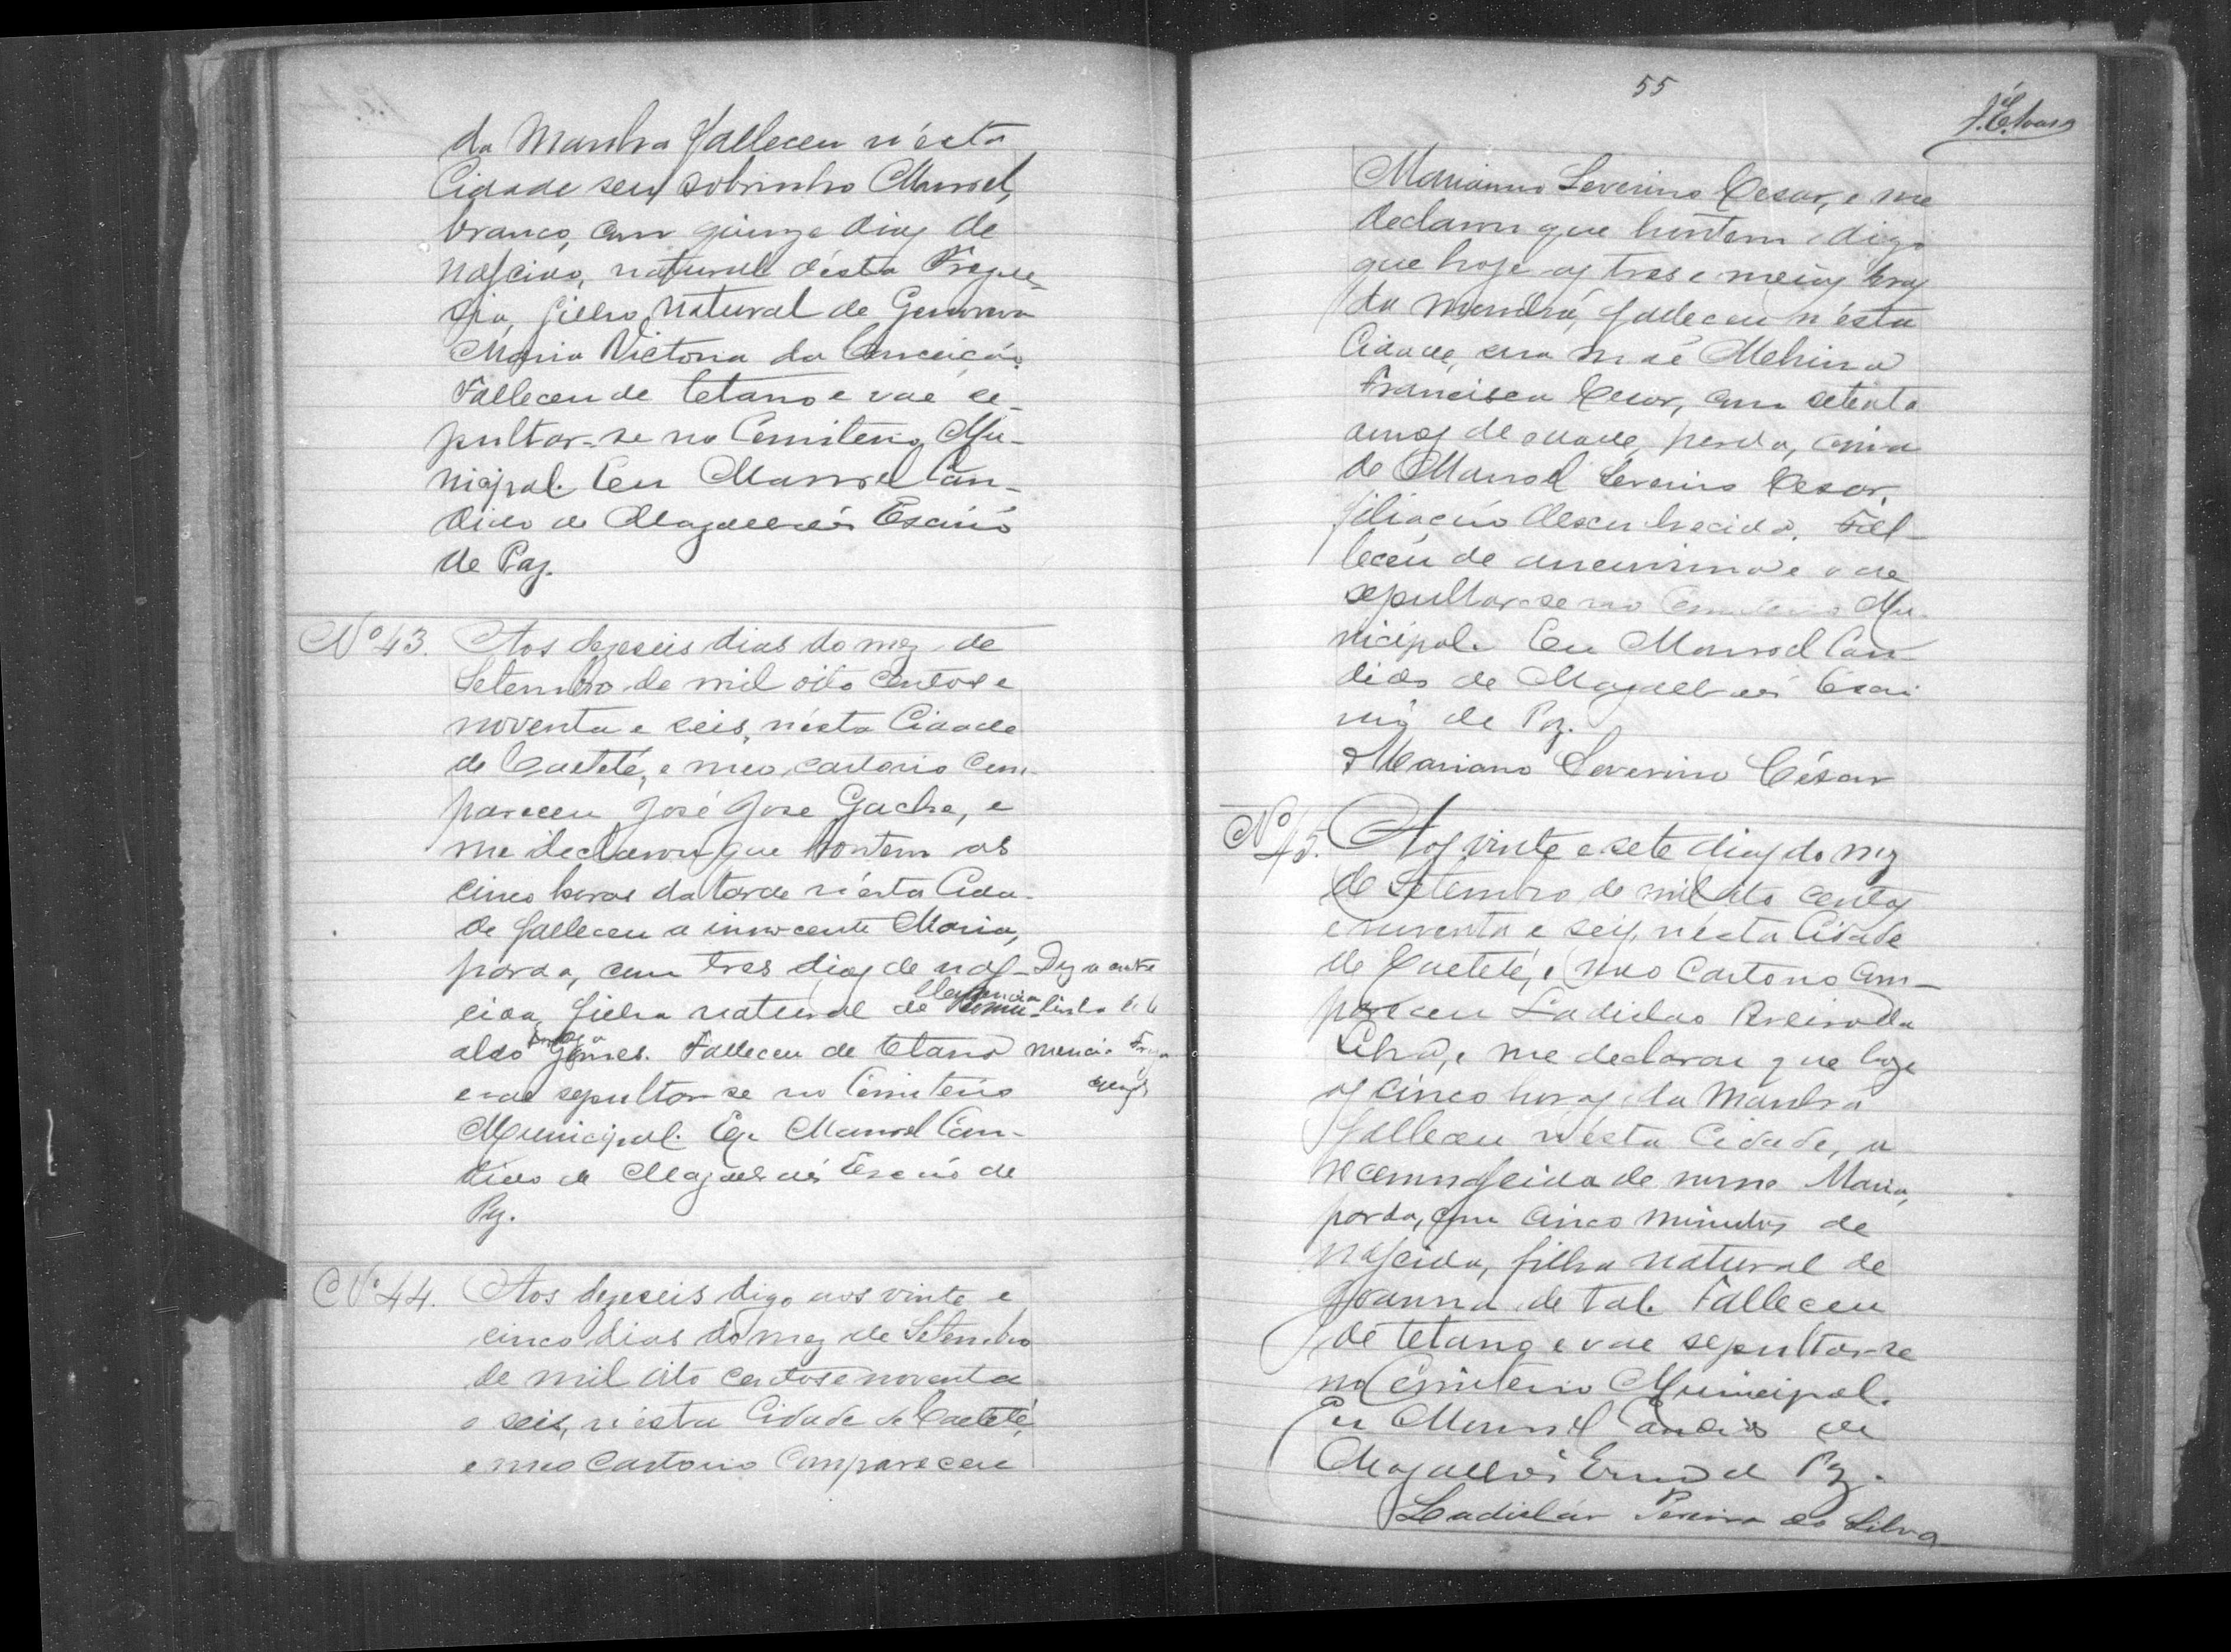 da Manhã falleceu n'ésta
Cidade seu sobrinho Manoel,
branco, com quinze dias de
nascido, natural désta Fregue-
sia, filho natural de Genoveva
Maria Victoria da Conceição.
Falleceu de tetano e vae se-
pultar-se no Cemiterio Mu-
nicipal. Eu Manoel Can-
dido de Magalhães Escrivão
de Paz.
Nº 43. Aos dezeseis dias do mez de
Setembro de mil oito centos e
noventa e seis, n'ésta Cidade
de Caeteté, e meo cartorio com-
pareceu José Gacha, e
me declarou que hontem as
cinco horas da tarde n'ésta Cida-
de falleceu a innocente Maria,
parda, com tres dias de nas-
cida, filha natural de
Gomes. Falleceu de tetano
e vae sepultar-se no Cemiterio
Municipal. Eu Manoel Can-
dido de Magalhães Escrivão de
Paz.
Nº 44. Aos dezeseis digo aos vinte e
cinco dias do mez de Setembro
de mil oito centos e noventa
e seis, n'ésta Cidade de Caeteté,
e meo Cartorio Compareceu
55
Marianno Severino Cesar, e me
declarou que hontem, digo
que hoje as tres e meias horas
da manhã, falleceu n'ésta
Cidade, sua mãe
Francisca Cesar, com setenta
annos de edade, parda,
de Manoel Severino Cesar,
filiação desconhecida. Fal-
leceu de aneurisma e vae
sepultar-se no Cemiterio Mu-
nicipal. Eu Manoel Can-
dido de Magalhães Escri-
vão de Paz.
Mariano Severino César
Nº 45. Aos vinte e sete dias do mez
de Setembro de mil oito centos
e noventa e seis, n'ésta Cidade
de Caeteté, e meo Cartorio Com-
pareceu Ladislao Pereira da
Silva, e me declarou que hoje
as cinco horas da Manhã
falleceu n'ésta Cidade, a
recemnascida de nome Maria,
parda, com cinco minutos de
nascida, filha natural de
Joanna de tal. Falleceu
de tetano e vae sepultar-se
no Cemiterio Municipal.
Eu Manoel Candido de
Magalhães Escrivão de Paz.
Ladisláo Pereira da Silva